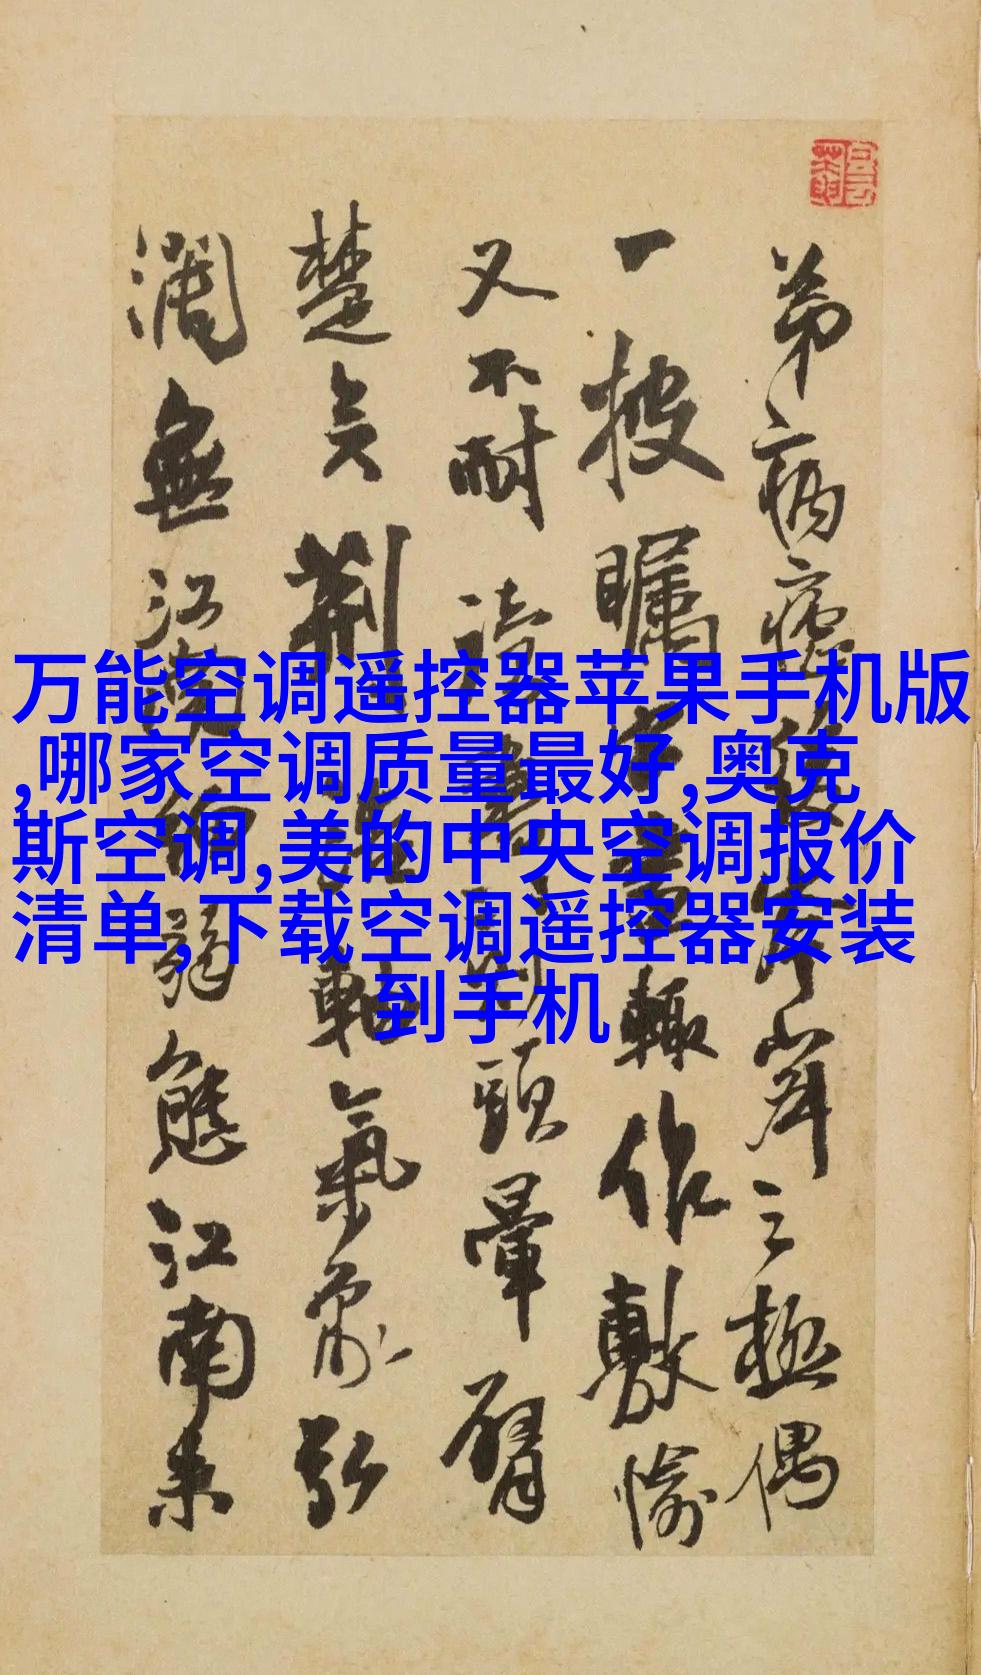 万能空调遥控器苹果手机版
,哪家空调质量最好,奥克
斯空调,美的中央空调报价
清单,下载空调遥控器安装
到手机
弟病之極偶
一披矚輒作數愉
又不耐讀頭暈臂
楚矣荆氣象弘
濶無江弱態江南朱